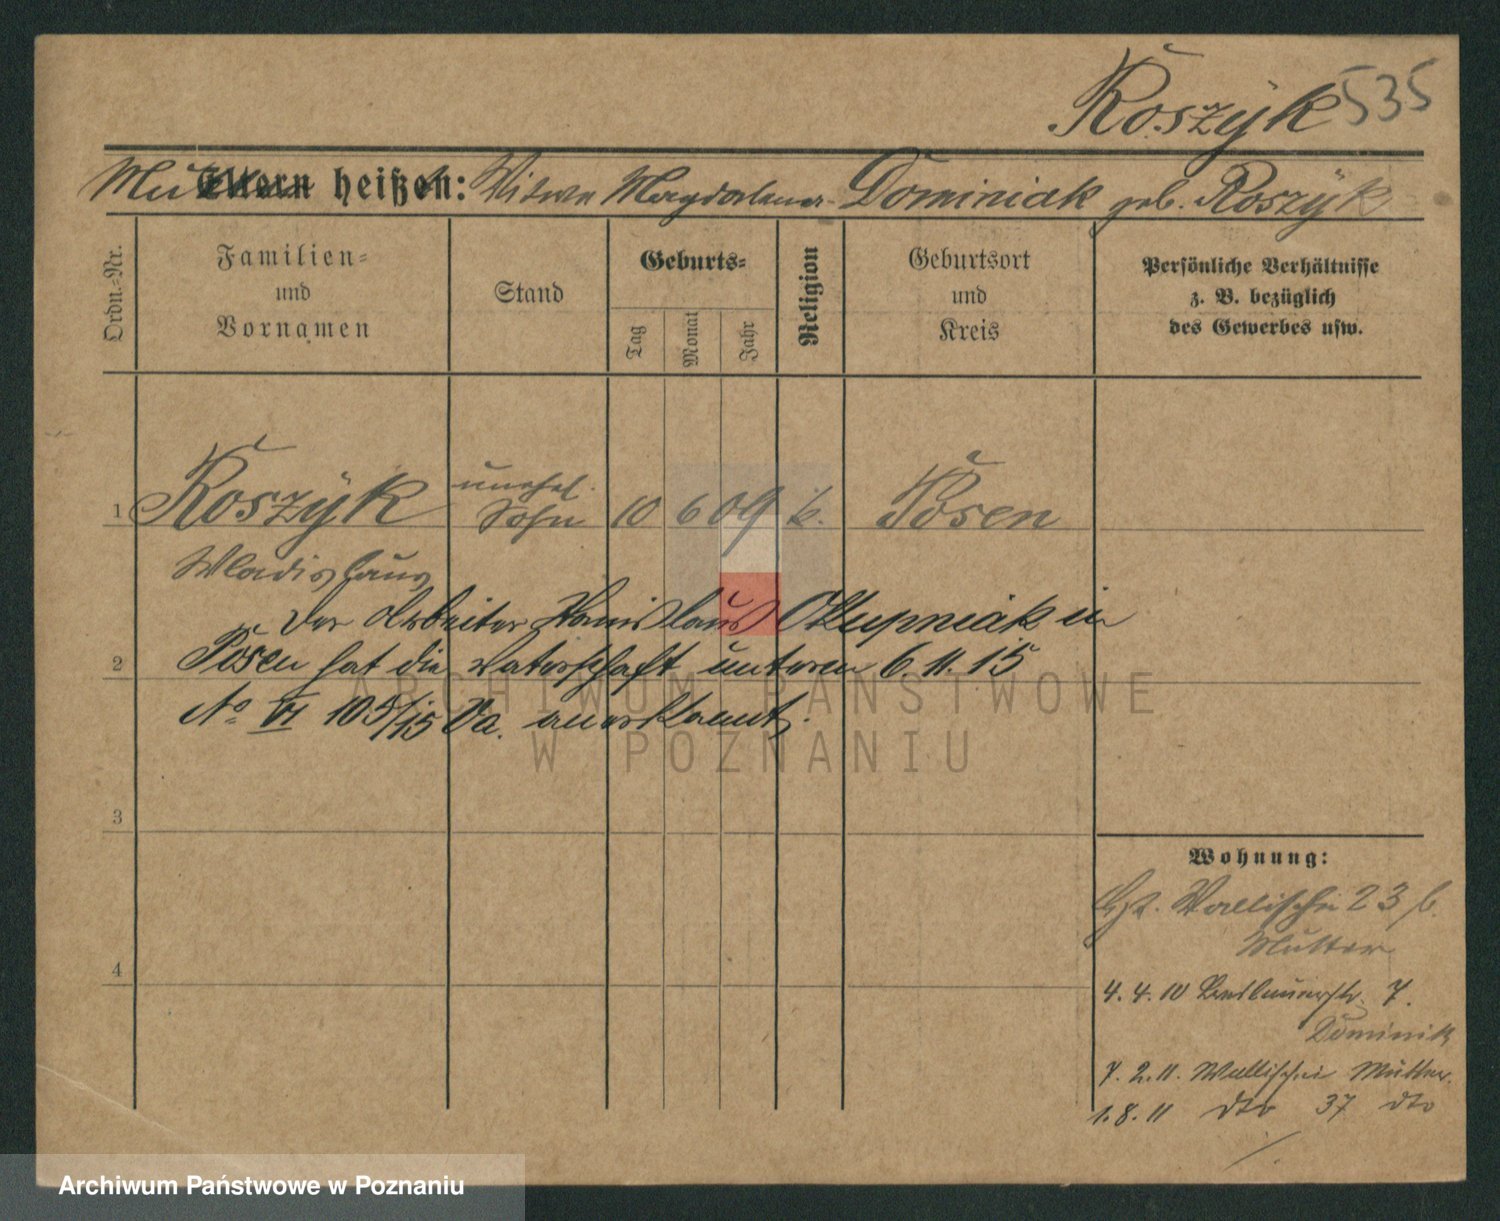 Koszÿk 535
Mutter heißt: Witwe Magdalena Dominiak geb. Koszÿk
Ordn.-Nr.
Familien-
und
Vornamen
Stand
Geburts-
Tag
Monat
Jahr
Religion
Geburtsort
und
Kreis
Persönliche Verhältnisse
z. B. bezüglich
des Gewerbes usw.
1 Koszÿk unehel. Sohn 10 6 09 k. Posen
Wladislaus
Der Arbeiter Stanislaus Skupniak in
2 Posen hat die Vaterschaft unterm 6. 11. 15
No VI 105/15 Va. anerkannt.
3
4
Wohnung:
Wallischei 23 b.
Mutter
4. 4. 10 7.
Dominik
7. 2. 11. Wallischei Mutter
1. 8. 11 dto 37 dto
ARCHIWUM PAŃSTWOWE
W POZNANIU
Archiwum Państwowe w Poznaniu